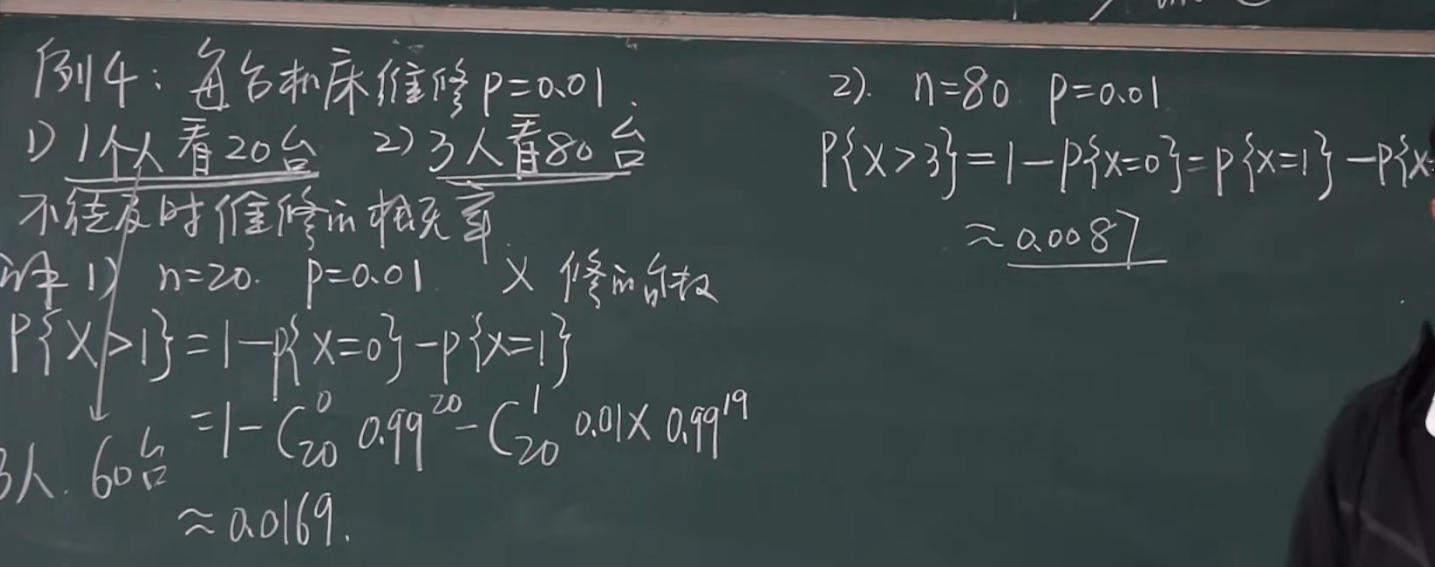 例4：每台机床维修p=0.01.
1) 1个人看20台  2) 3人看80台
不能及时维修的概率
解 1) n=20. p=0.01 X 修的台数
P{X>1}=1-P{X=0}-P{X=1}
=1-C₂₀⁰ 0.99²⁰-C₂₀¹ 0.01×0.99¹⁹
3人. 60台
≈0.0169.
2). n=80 p=0.01
P{X>3}=1-P{X=0}=P{X=1}-P{X
≈0.0087